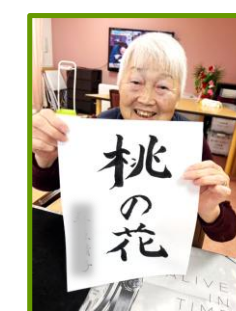 桃の花
ALIVE
IN
TIME